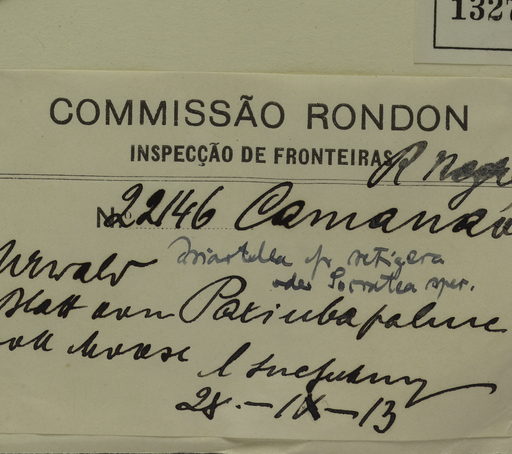 1327
COMMISSÃO RONDON
INSPECÇÃO DE FRONTEIRAS
R Negr
No. 22146 Camanaú
Urwald Iriartella fr setigera
oder Socratea sper.
Blatt vom Paxiubapalme
voll Moose
28.-IX-13